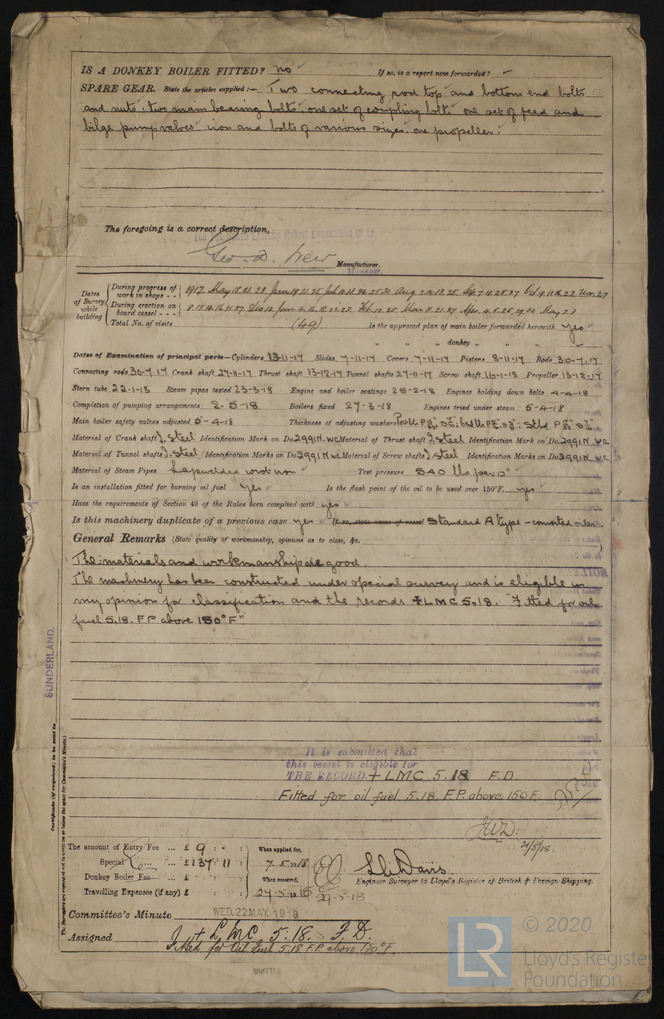 IS A DONKEY BOILER FITTED? no If so, is a report now forwarded? -
SPARE GEAR. State the articles supplied:- Two connecting rod top and bottom end bolts
and nuts. two main bearing bolts. one set of coupling bolts one set of feed and
bilge pump valves iron and bolts of various sizes. one propeller.
The foregoing is a correct description,
Geo. D. Weir Manufacturer.
Manager.
Dates of Survey while building
During progress of work in shops - -
1917 May 18. 21. 29
During erection on board vessel - - -
Total No. of visits (49) Is the approved plan of main boiler forwarded herewith yes
" " " donkey " "
Dates of Examination of principal parts—Cylinders 13-11-17 Slides 7-11-17 Covers 7-11-17 Pistons 8-11-17 Rods 30-7-17
Connecting rods 30-7-17 Crank shaft 27-11-17 Thrust shaft 13-12-17 Tunnel shafts 27-11-17 Screw shaft 16-1-18 Propeller 13-12-17
Stern tube 22-1-18 Steam pipes tested 23-3-18 Engine and boiler seatings 28-2-18 Engines holding down bolts 4-4-18
Completion of pumping arrangements 2-5-18 Boilers fixed 27-3-18 Engines tried under steam 5-4-18
Main boiler safety valves adjusted 5-4-18 Thickness of adjusting washers
Material of Crank shaft I. Steel Identification Mark on Do. 2991N. WC Material of Thrust shaft I. Steel Identification Mark on Do. 2991N. WC
Material of Tunnel shafts I. Steel Identification Marks on Do. 2991N WC Material of Screw shafts I Steel Identification Marks on Do. 2991N. WC
Material of Steam Pipes Lapwelded wrot iron Test pressure 540 lbs per □"
Is an installation fitted for burning oil fuel yes Is the flash point of the oil to be used over 150°F. yes
Have the requirements of Section 49 of the Rules been complied with yes
Is this machinery duplicate of a previous case yes If so, state name of vessel Standard A type - converted oiler.
General Remarks (State quality of workmanship, opinions as to class, &c.
The materials and workmanship are good.
The machinery has been constructed under special survey and is eligible in
my opinion for classification and the records +LMC 5.18. "Fitted for oil
fuel 5.18. F.P. above 150°F".
SUNDERLAND.
Certificate (if required) to be sent to
It is submitted that
this vessel is eligible for
THE RECORD. + LMC 5.18 F.D
Fitted for oil fuel 5.18. F.P. above 150F.
J.W.D.
21/5/18.
The amount of Entry Fee ... £ 9 : - : When applied for,
Special ... £ 137 : 11 : 7.5.1918
Donkey Boiler Fee ... £ : : When received,
Travelling Expenses (if any) £ : : 27-5-1918 29-5-18
Engineer Surveyor to Lloyd's Register of British & Foreign Shipping.
Committee's Minute WED. 22 MAY. 1918
Assigned + LMC 5.18. F.D.
Fitted for Oil Fuel 5.18 F.P. above 150°F.
© 2020
LR
Lloyd's Register
Foundation